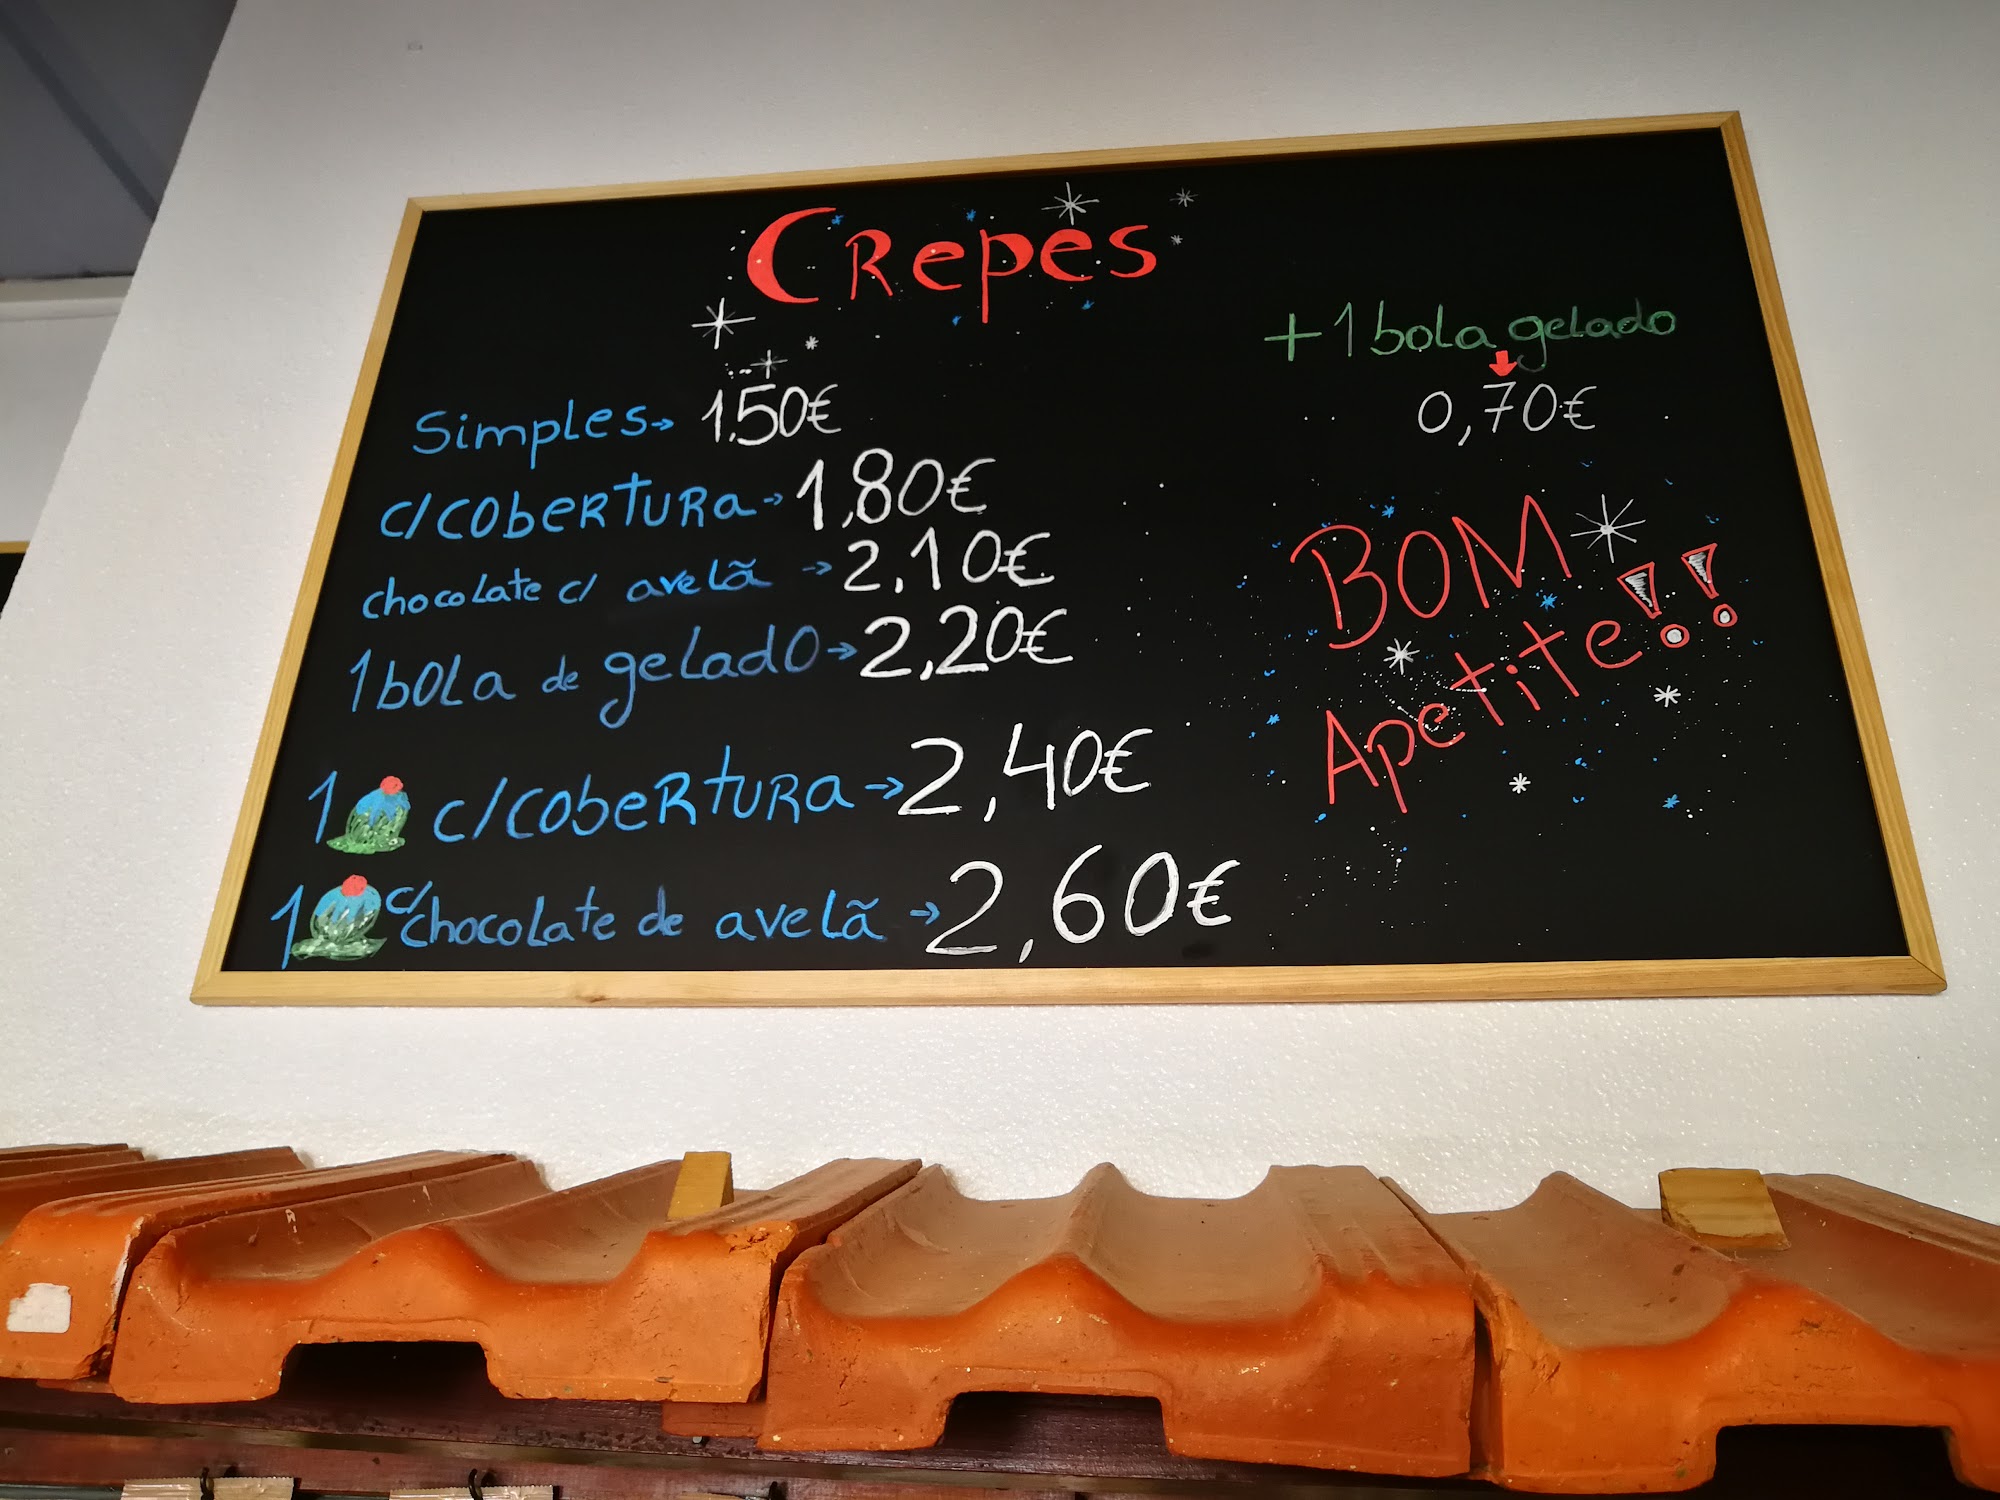 Crepes
Simples→ 1.50€
c/cobertura→ 1,80€
chocolate c/ avelã → 2,10€
1 bola de gelado→ 2,20€
1 c/cobertura→ 2,40€
1 c/chocolate de avelã → 2,60€
+1 bola gelado
0,70€
BOM
Apetite!!